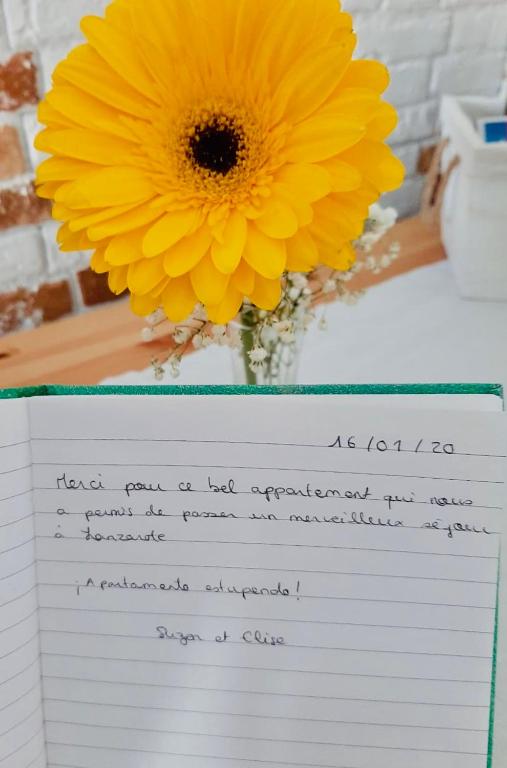 16/01/20
Merci pour ce bel appartement qui nous
a permis de passer un merveilleux séjour
à Lanzarote
¡Apartamento estupendo!
Suzon et Elise